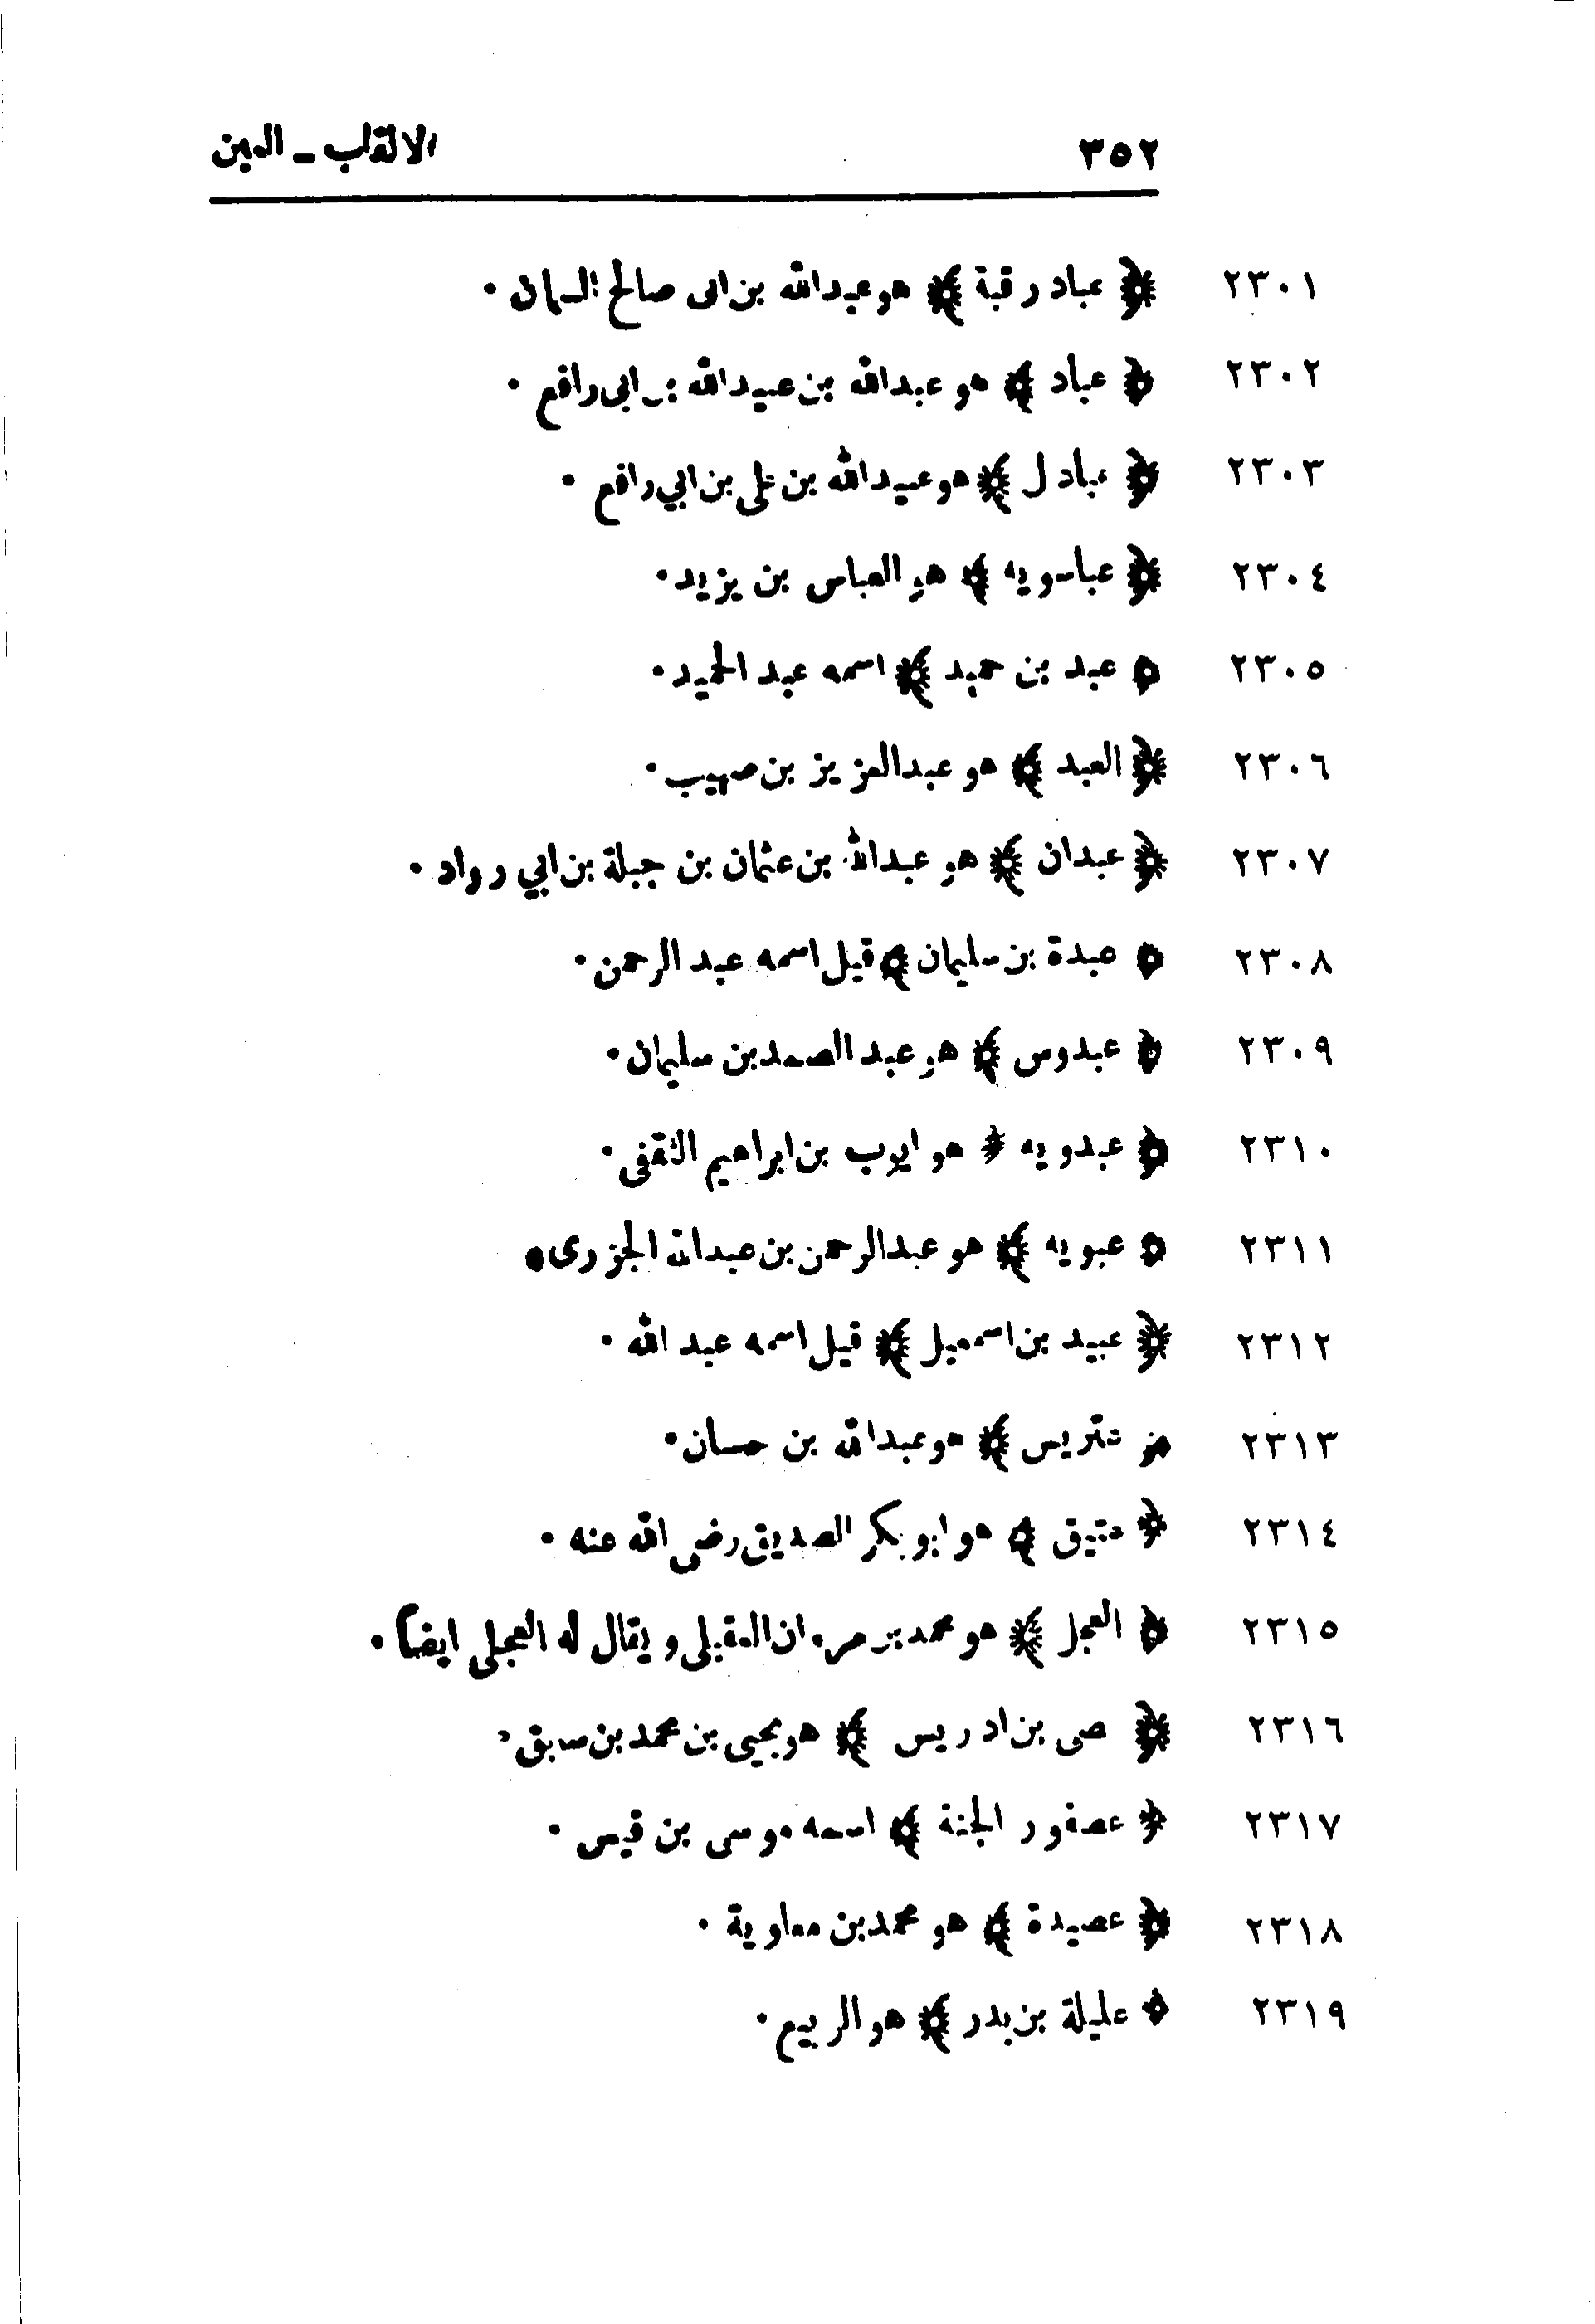 ٣٥٢ الالقاب ـ العين
٢٣٠١ ﴿ عباد رقبة ﴾ هو عبدالله بن ابى صالح السمان ٠
٢٣٠٢ ﴿ عباد ﴾ هو عبدالله بن عبيدالله بن ابى رافع ٠
٢٣٠٣ ﴿ عبادل ﴾ هو عبيدالله بن على بن ابي رافع ٠
٢٣٠٤ ﴿ عباسويه ﴾ هو العباس بن يزيد ٠
٢٣٠٥ ﴿ عبد بن حميد ﴾ اسمه عبد الحميد ٠
٢٣٠٦ ﴿ العبد ﴾ هو عبدالعزيز بن صهيب ٠
٢٣٠٧ ﴿ عبدان ﴾ هو عبدالله بن عثمان بن جبلة بن ابي رواد ٠
٢٣٠٨ ﴿ عبدة بن سليمان ﴾ قيل اسمه عبد الرحمن ٠
٢٣٠٩ ﴿ عبدوس ﴾ هو عبد الصمد بن سليمان ٠
٢٣١٠ ﴿ عبدويه ﴾ هو ايوب بن ابراهيم الثقفى ٠
٢٣١١ ﴿ عبويه ﴾ هو عبدالرحمن بن عبدالله الجزرى ٠
٢٣١٢ ﴿ عبيد بن اسمعيل ﴾ قيل اسمه عبد الله ٠
٢٣١٣ ﴿ عتريس ﴾ هو عبدالله بن حسان ٠
٢٣١٤ ﴿ عتيق ﴾ هو ابو بكر الصديق رضى الله عنه ٠
٢٣١٥ ﴿ العجل ﴾ هو محمد بن مروان العقيلى ويقال له العجلى ايضاً ٠
٢٣١٦ ﴿ بن ادريس ﴾ هو يحيى بن محمد بن سابق ٠
٢٣١٧ ﴿ عصفور الجنة ﴾ اسمه موسى بن قيس ٠
٢٣١٨ ﴿ عصيدة ﴾ هو محمد بن معاوية ٠
٢٣١٩ ﴿ عليلة بن بدر ﴾ هو الربيع ٠